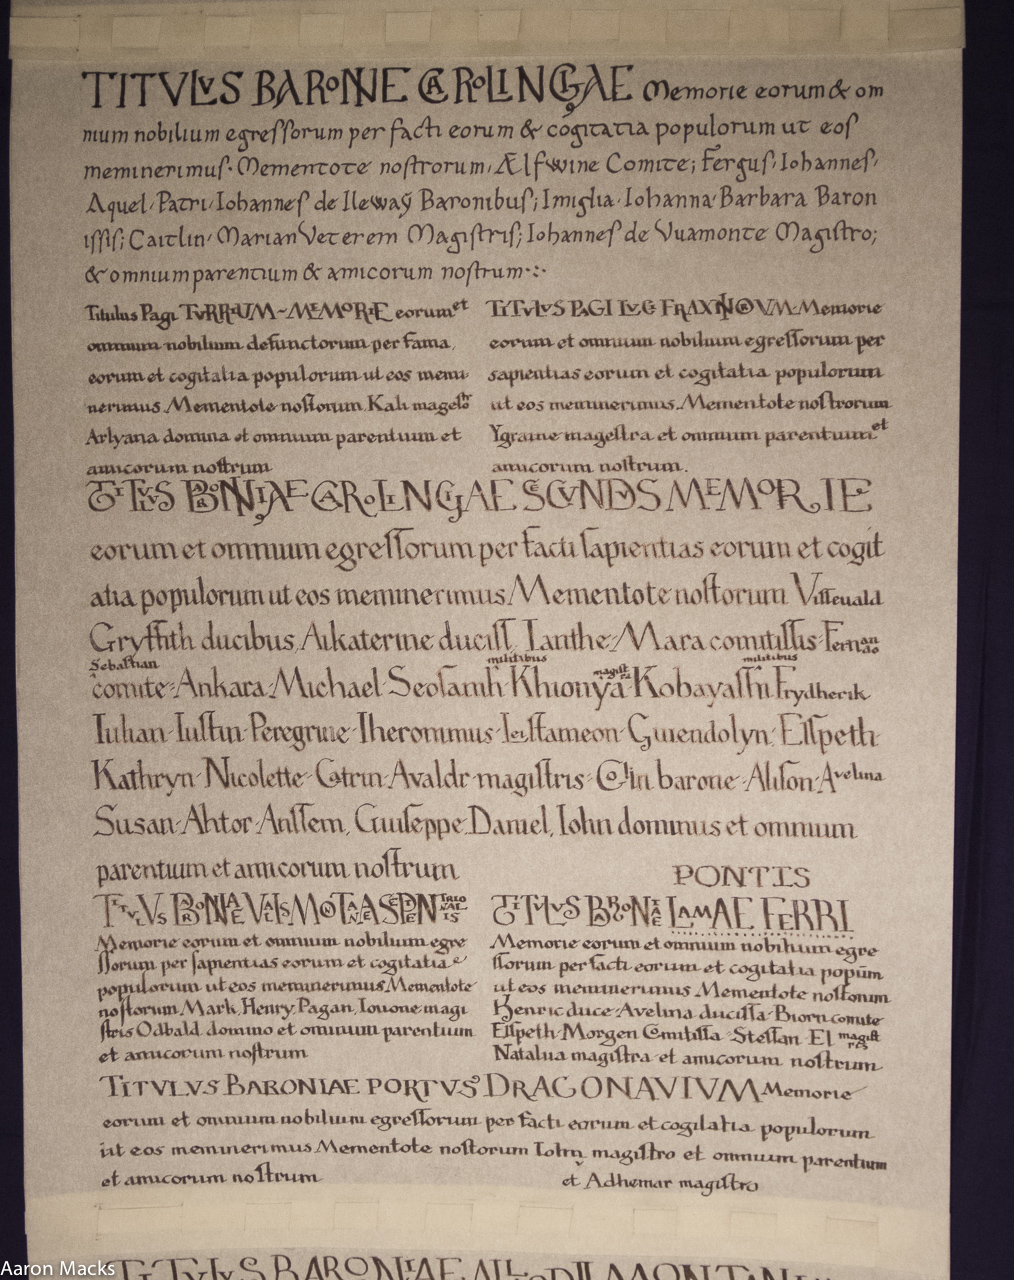 TITVLVS BARONIAE CAROLINGAE Memorie eorum & om
nium nobilium egressorum per facti eorum & cogitatia populorum ut eos
meminerimus. Mementote nostrorum, Ælfwine Comite; Fergus, Iohannes,
Aquel, Patri, Iohannes de Ileway Baronibus; Imiglia, Iohanna, Barbara Baron
issis; Caitlin, Marian Veterem Magistris; Iohannes de Vuamonte Magistro;
& omnium parentium & amicorum nostrum
Titulus Pagi TURRIUM ~ MEMORIE eorum et
omnium nobilium defunctorum per fama,
eorum et cogitatia populorum ut eos memi
nerimus. Mementote nostorum. Kali magestr
Arlyana domina et omnium parentium et
amicorum nostrum
TITVLVS PAGI LVCI FRAXINORVM. Memorie
eorum et omnium nobilium egressorum per
sapientias eorum et cogitatia populorum
ut eos meminerimus. Mementote nostrorum
Ygraine magestra et omnium parentium et
amicorum nostrum.
TITVLVS BARONIAE CAROLINGAE SECVNDVS MEMORIE
eorum et omnium egressorum per facti sapientias eorum et cogit
atia populorum ut eos meminerimus Mementote nostorum Vissevald
Gryffith ducibus, Aikaterine duciss, Ianthe, Mara comitissis Fernando
Sebastian militibus magistra militibus
comite Ankara Michael Seosamh Khionya Kobayashi Frydherik
Iulian Iustin Peregrine Iheronimus Iostameon Gwendolyn, Elspeth
Kathryn Nicolette Catrin Avaldr magistris Colin barone Alison Avelina
Susan Ahtor Anssem, Guiseppe Daniel, Iohn dominus et omnium
parentium et amicorum nostrum
TITVLVS BARONIAE
Memorie eorum et omnium nobilium egre
ssorum per sapientias eorum et cogitatia
populorum ut eos meminerimus Mementote
nostorum Mark, Henry, Pagan, Iovone magi
stris Odbald domino et omnium parentium
et amicorum nostrum
PONTIS
TITVLVS BARONIAE LAMAE FERRI
Memorie eorum et omnium nobilium egre
ssorum per facti eorum et cogitatia popūm
ut eos meminerimus Mementote nostorum
Henric duce Avelina ducissa Biorn comite
Elspeth Morgen Comitissa Steffan El magist
Natalia magistra et amicorum nostrum
TITVLVS BARONIAE PORTVS DRACONAVIVM Memorie
eorum et omnium nobilium egressorum per facti eorum et cogitatia populorum
ut eos meminerimus Mementote nostorum Iohn magistro et omnium parentium
et amicorum nostrum et Adhemar magistro
TITVLVS BARONIAE
Aaron Macks